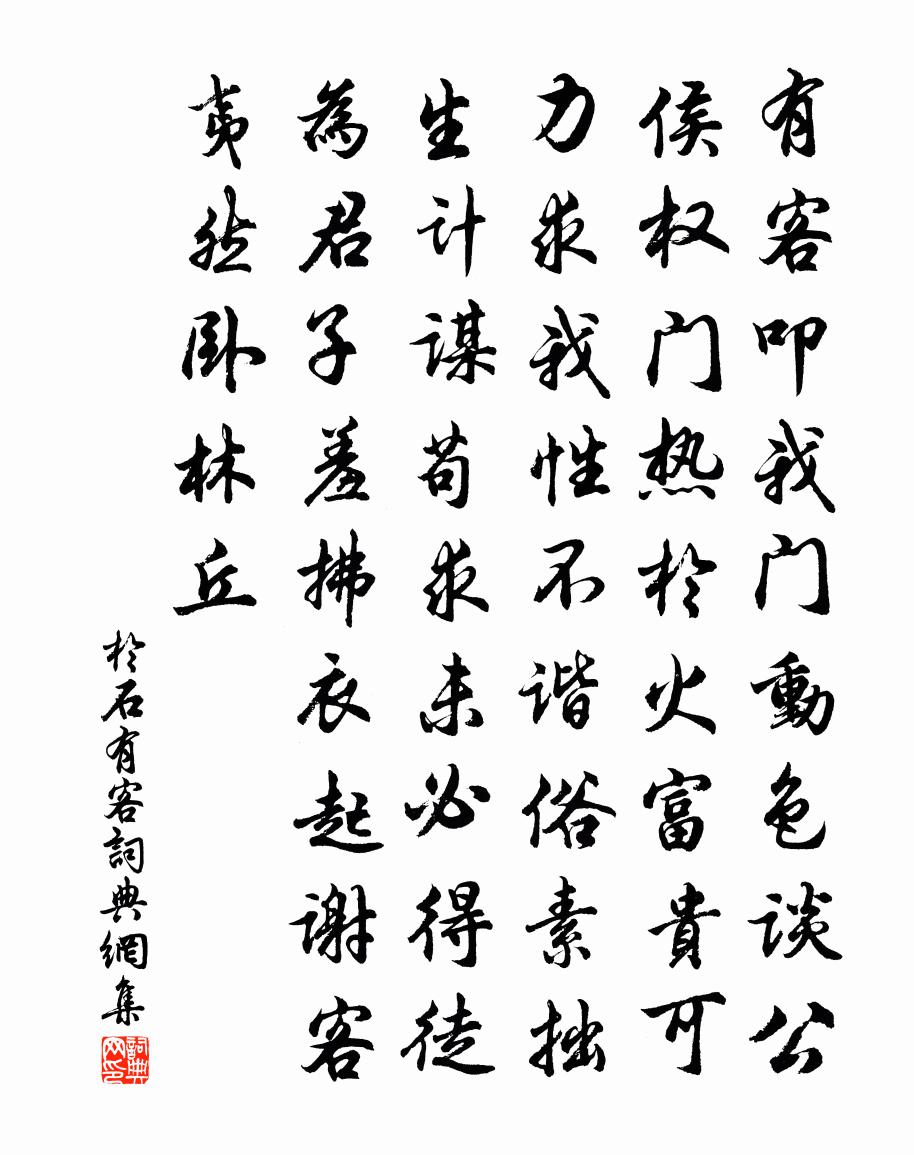 有客叩我门動色谈公
侯权门热於火富貴可
力求我性不谐俗素拙
生计謀苟求未必得徒
為君子羞拂衣起谢客
夷然卧林丘
於石有客詞典網集
詞典网印